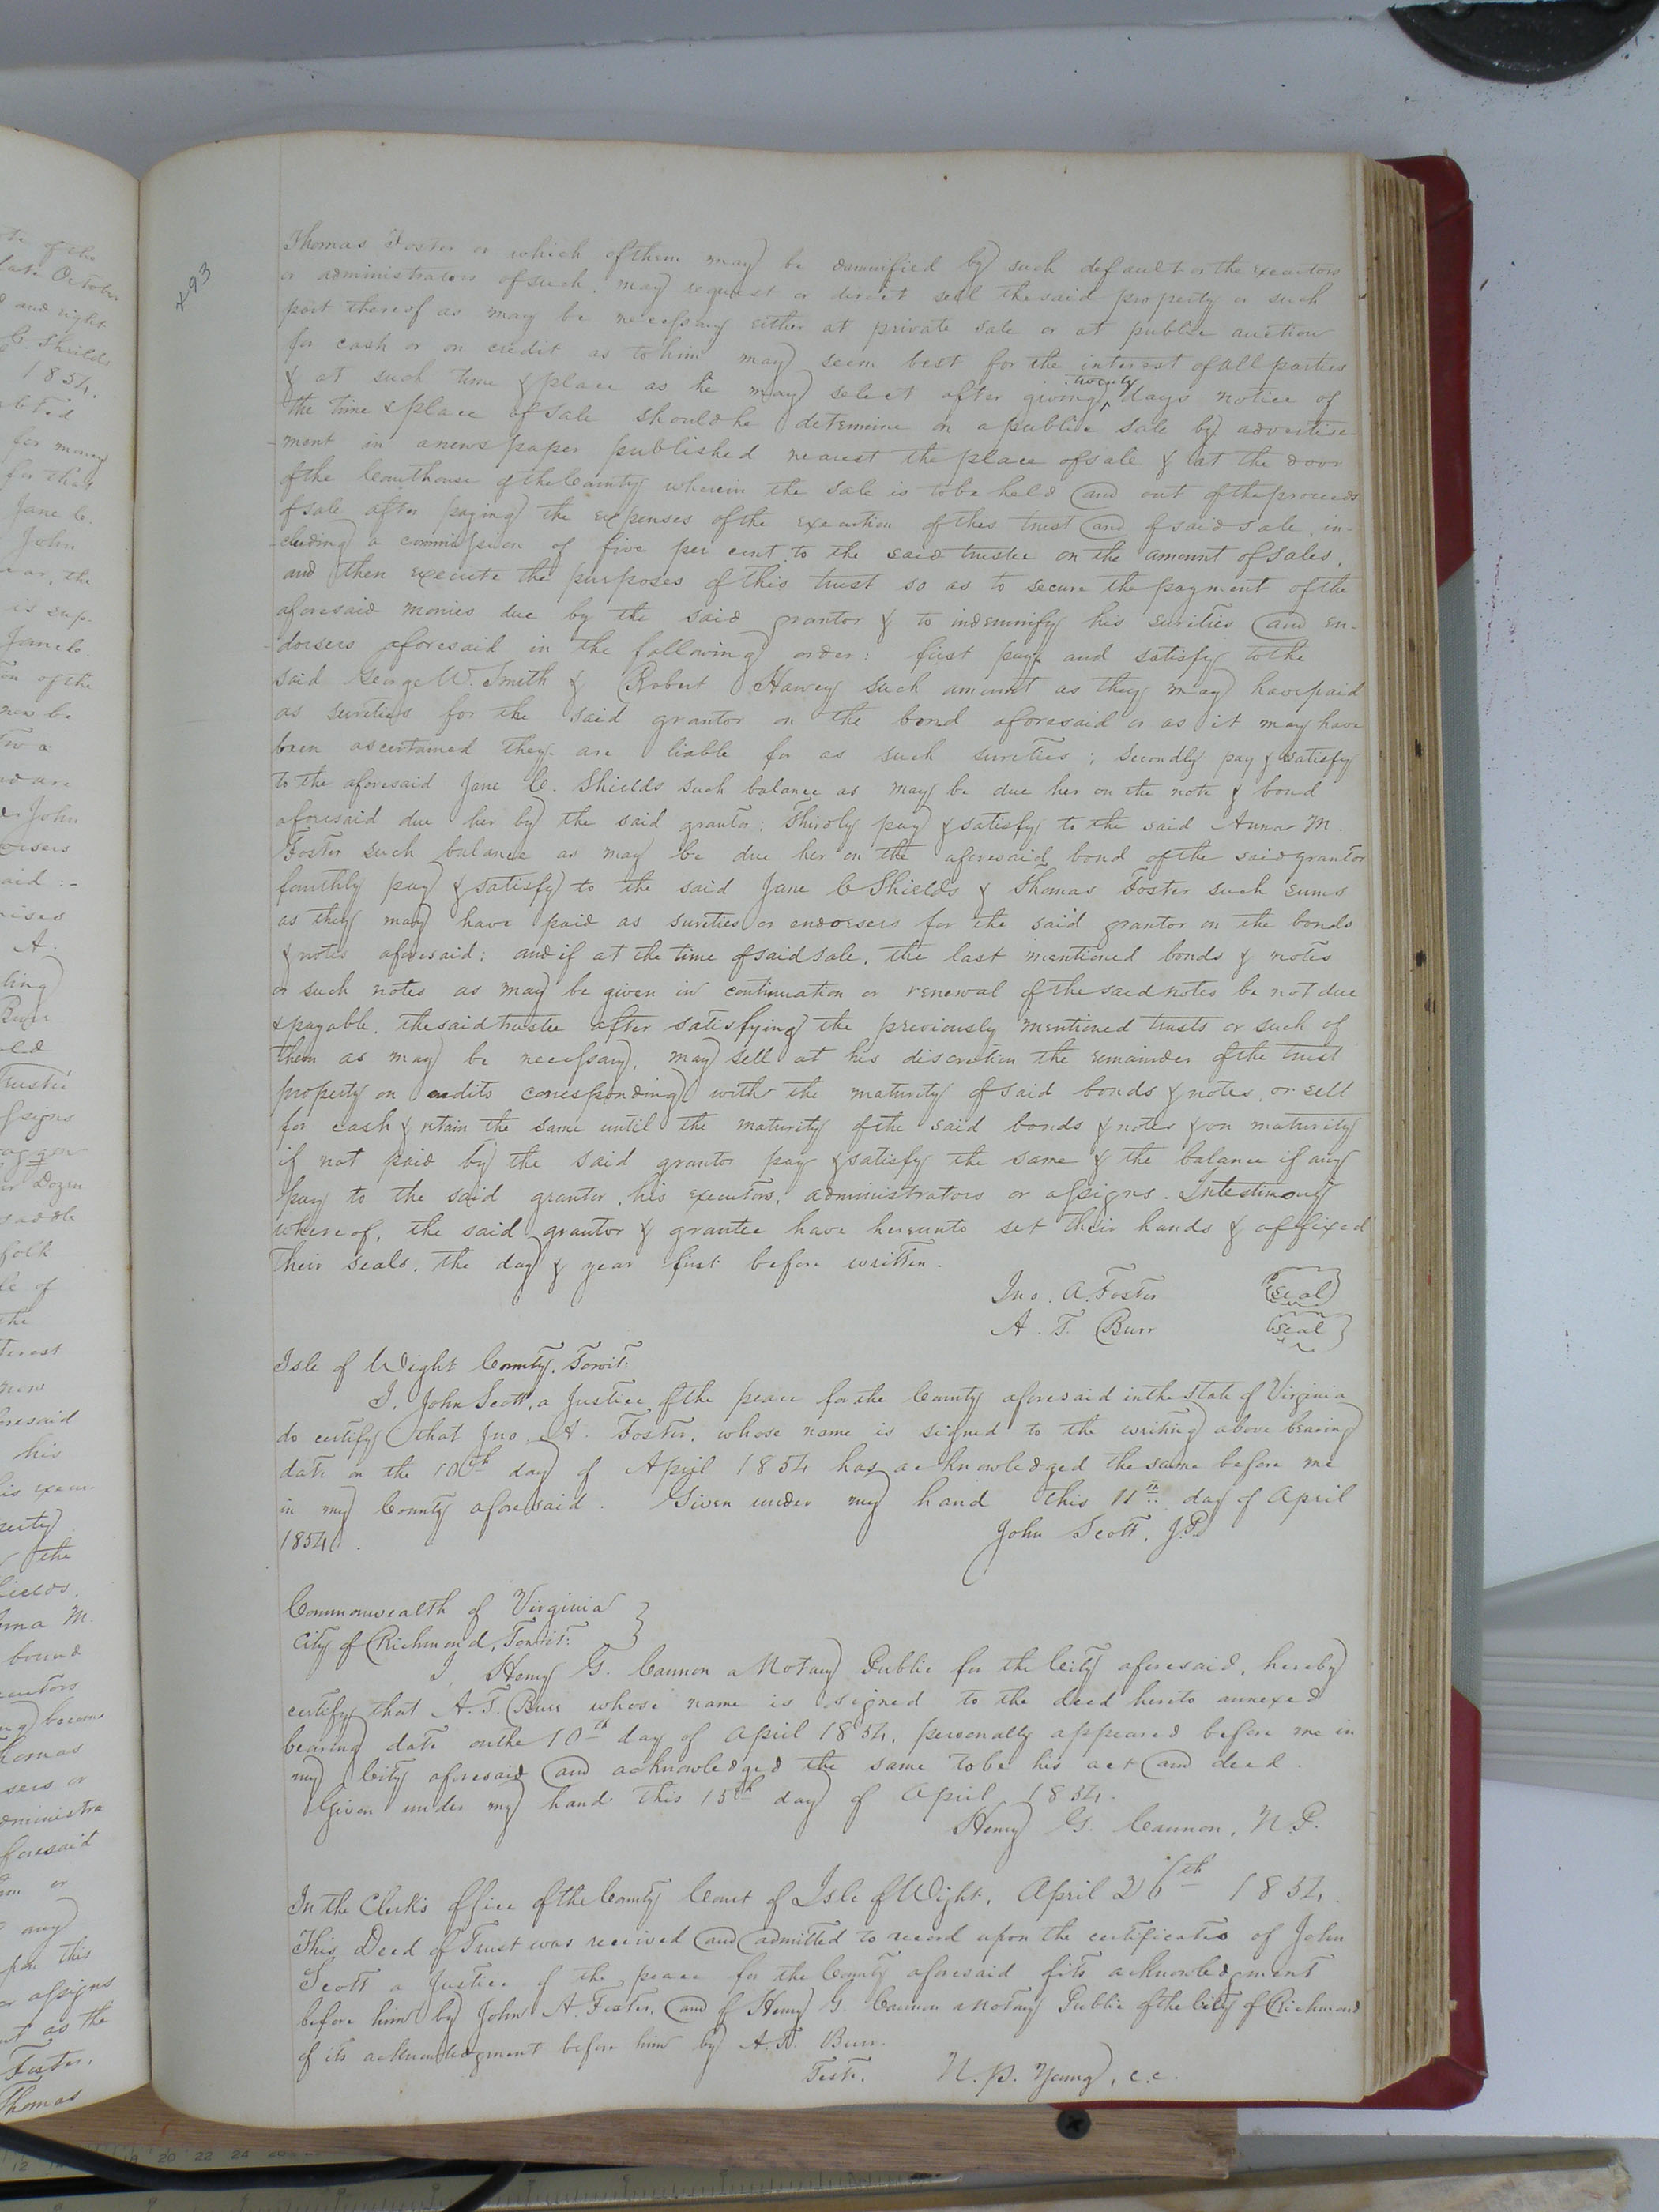 te of the
late October
d and right
C. Shields
1854.
ebted
for money
for that
Jane C.
John
ear, the
is sup-
Jane C.
on of the
now be
two a
nd are
er John
dorsers
aid :-
mises
A.
ling
Burr
led
Trustee
ssigns
waggon
ur Dozen
saddle
folk
le of
the
terest
new
foresaid
his
his execu-
perty
the
Shields
Anna M.
bound
ecutors
ng become
Thomas
sers or
dministra
foresaid
on or
any
upon this
or assigns
nt as the
Foster,
Thomas
493
Thomas Foster or which of them may be damnified by such default or the executors
or administrators of such, may request or direct sell the said property or such
part thereof as may be necessary either at private sale or at public auction
for cash or on credit as to him may seem best for the interest of all parties
& at such time & place as he may select after giving twenty days notice of
the time & place of sale should he determine on a public sale by advertise-
ment in a newspaper published nearest the place of sale & at the door
of the Courthouse of the County wherein the sale is to be held and out of the proceeds
of sale after paying the expenses of the execution of this trust and of said sale, in-
-cluding a commission of five per cent to the said trustee on the amount of sales,
and then execute the purposes of this trust so as to secure the payment of the
aforesaid monies due by the said grantor & to indemnify his surities and en-
-dorsers aforesaid in the following order: first pay and satisfy to the
said George W. Smith & Robert Hawey such amount as they may have paid
as sureties for the said grantor on the bond aforesaid or as it may have
been ascertained they are liable for as such sureties; Secondly pay & satisfy
to the aforesaid Jane C. Shields such balance as may be due her on the note & bond
aforesaid due her by the said grantor: Thirdly pay & satisfy to the said Anna M.
Foster such balance as may be due her on the aforesaid bond of the said grantor
fourthly pay & satisfy to the said Jane C Shields & Thomas Foster such sums
as they may have paid as sureties or endorsers for the said grantor on the bonds
& notes aforesaid; and if at the time of said sale, the last mentioned bonds & notes
or such notes as may be given in continuation or renewal of the said notes be not due
& payable, the said trustee after satisfying the previously mentioned trusts or such of
them as may be necessary, may sell at his discretion the remainder of the trust
property on credits corresponding with the maturity of said bonds & notes, or sell
for cash & retain the same until the maturity of the said bonds & notes & on maturity
if not paid by the said grantor pay & satisfy the same & the balance if any
pay to the said grantor, his executors, administrators or assigns. In testimony
whereof, the said grantor & grantee have hereunto set their hands & affixed
their seals, the day & year first before written.
Jno. A. Foster (seal)
A. T. Burr (seal)
Isle of Wight County, Towit:
I, John Scott, a Justice of the peace for the County aforesaid in the State of Virginia
do certify that Jno. A. Foster, whose name is signed to the writing above bearing
date on the 10th day of April 1854 has acknowledged the same before me
in my County aforesaid. Given under my hand this 11th day of April
1854.
John Scott, J.P.
Commonwealth of Virginia }
City of Richmond, Towit:
I, Henry G. Cannon a Notary Public for the City aforesaid, hereby
certify that A. T. Burr whose name is signed to the deed hereto annexed
bearing date on the 10th day of April 1854, personally appeared before me in
my City aforesaid and acknowledged the same to be his act and deed.
Given under my hand this 15th day of April 1854.
Henry G. Cannon, N.P.
In the Clerk's Office of the County Court of Isle of Wight, April 26th 1854.
This Deed of Trust was received and admitted to record upon the certificates of John
Scott a Justice of the peace for the County aforesaid of its acknowledgment
before him by John A. Foster, and of Henry G. Cannon a Notary Public of the City of Richmond
of its acknowledgment before him by A. T. Burr.
Teste. N. P. Young, c.c.
18 20 22 24